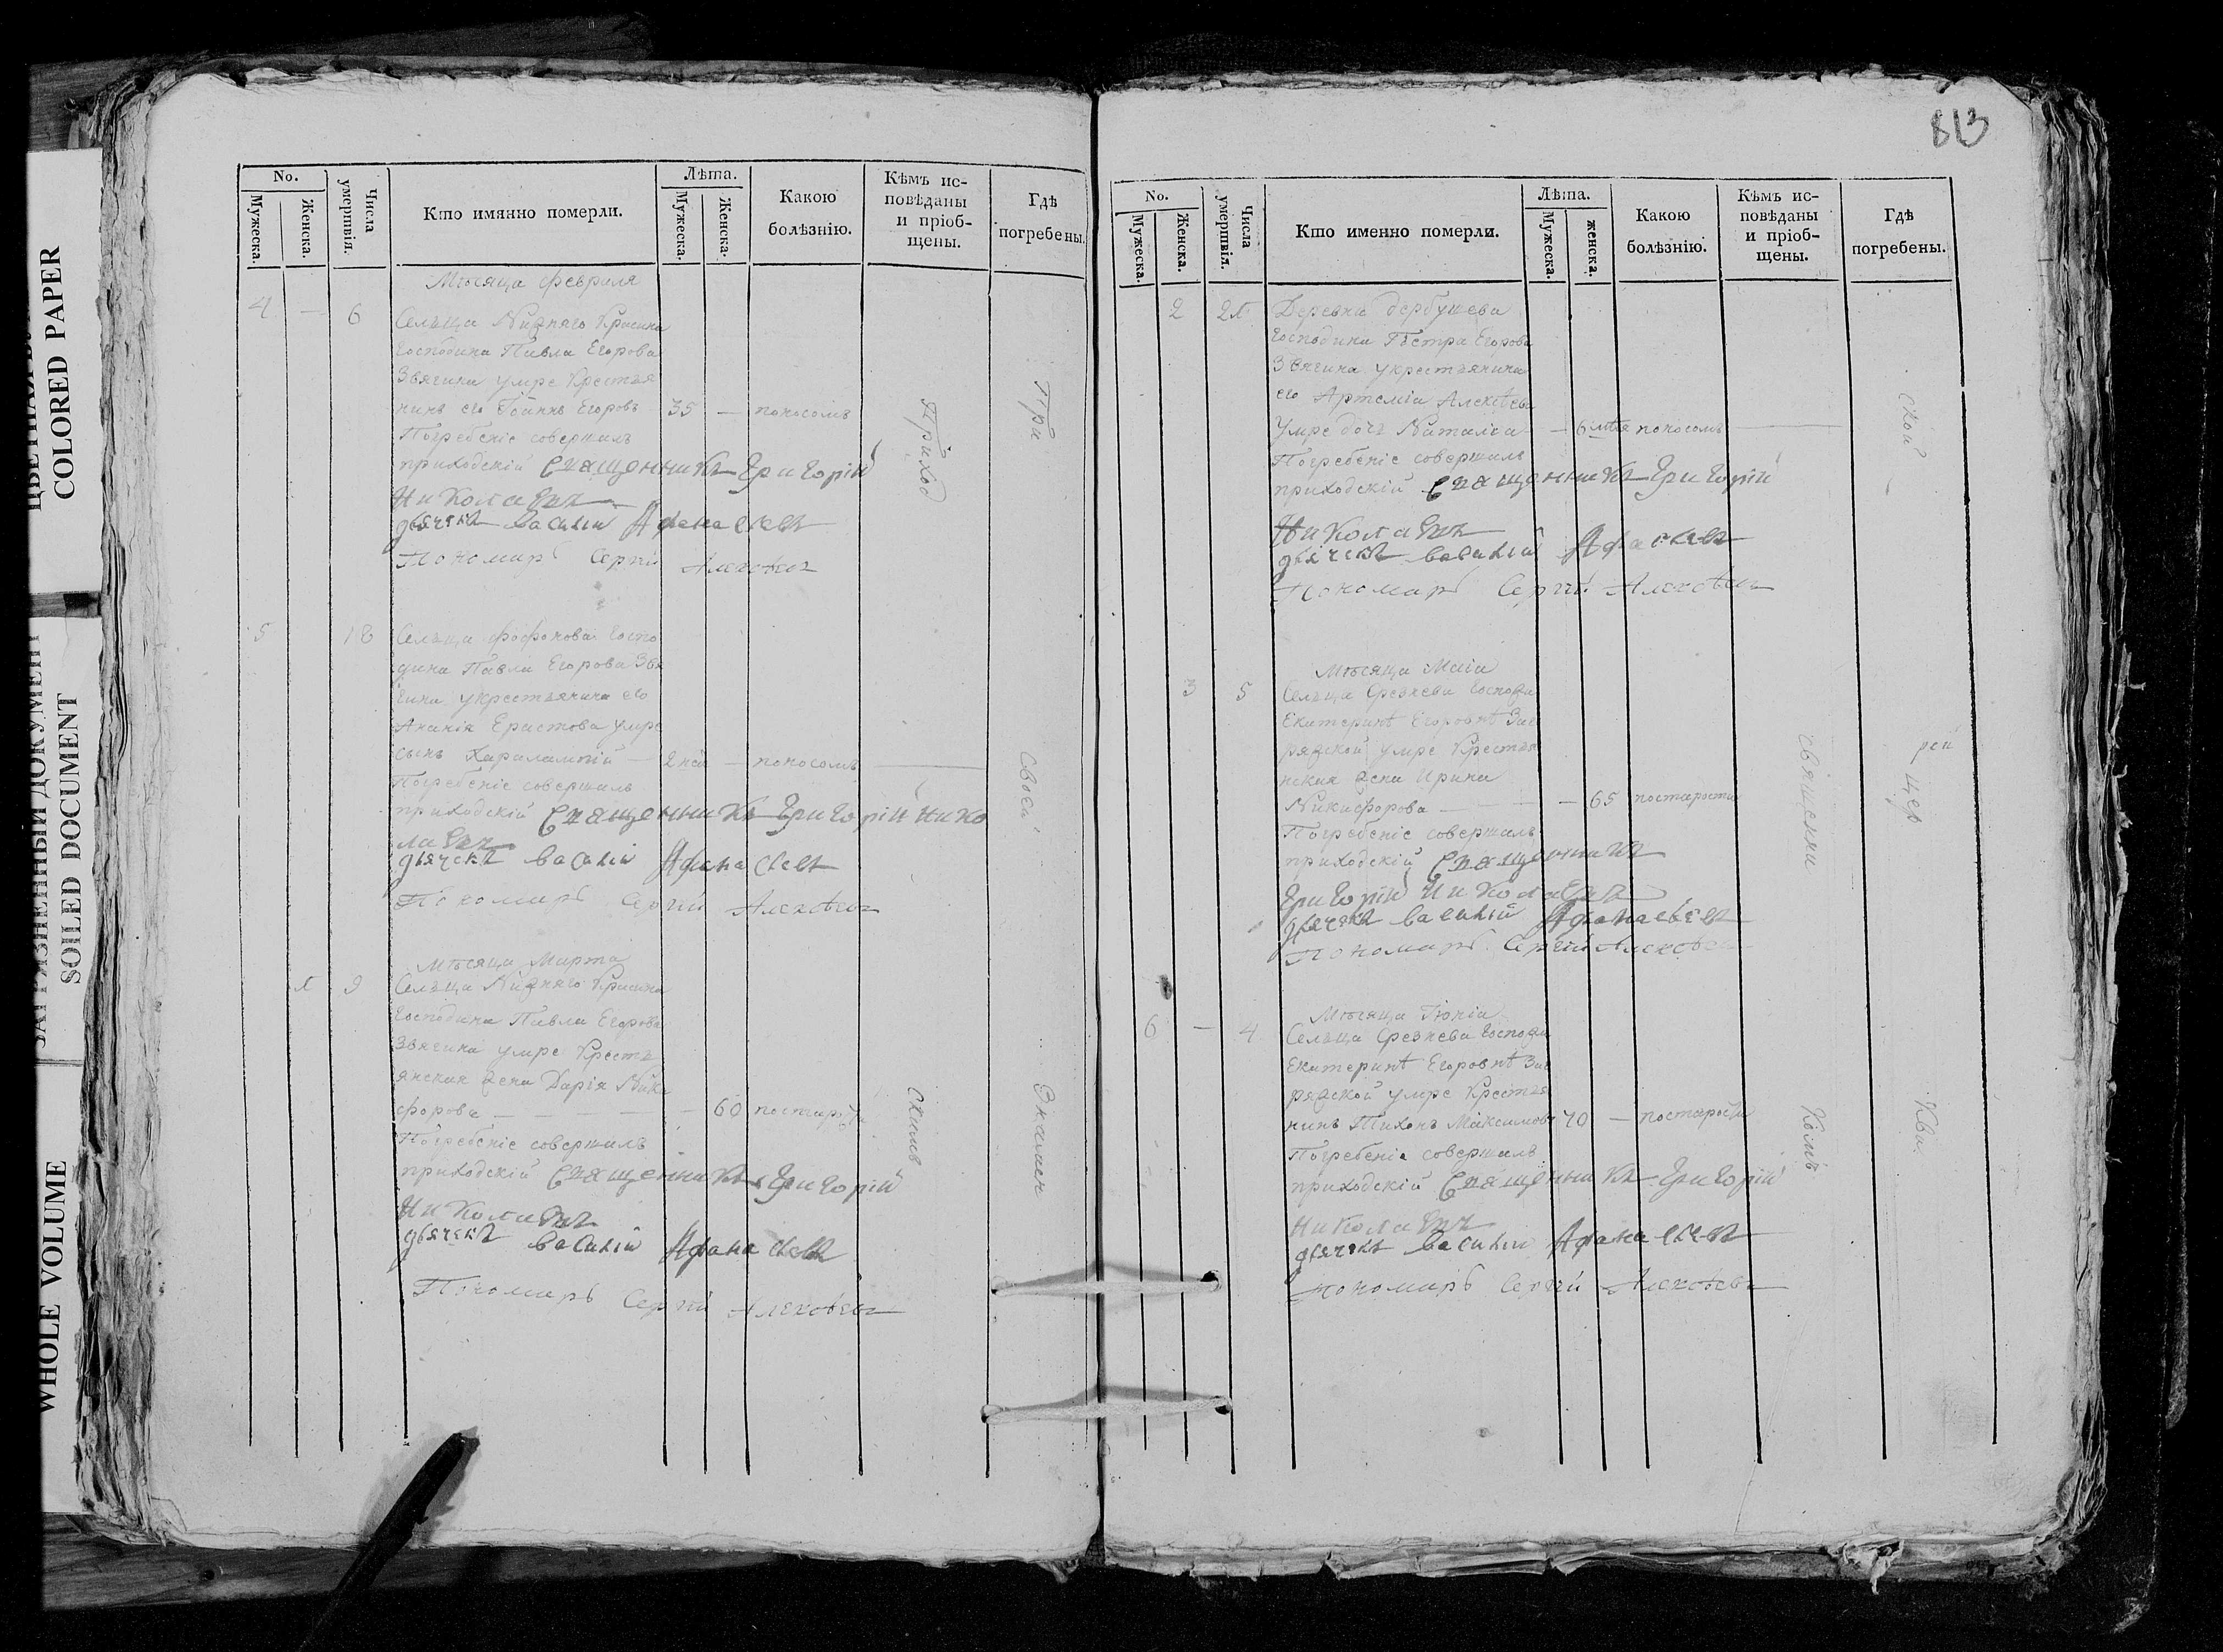 COLORED PAPER
SOILED DOCUMENT
WHOLE VOLUME
ЗАГРЯЗНЕННЫЙ ДОКУМЕНТ
No.
Мужеска.
Женска.
Числа умертвія.
Кто имянно померли.
Лѣта.
Мужеска.
Женска.
Какою болѣзнію.
Кѣмъ исповѣданы и пріобщены.
Гдѣ погребены.
Мѣсяца Февраля
4 — 6 Сельца Нижняго Красина
Господина Павла Егорова
Звягина умре Крестья
нинъ его Іоаннъ Егоровъ 35 — поносомъ
Погребеніе совершилъ
приходскій Священникъ Григорій
Николаевъ
дьячекъ Василій Афанасьевъ
Пономарь Сергій Алексѣевъ
5 18 Сельца Фофонова Госпо
дина Павла Егорова Звя
гина укрестьянина его
Ананія Ерастова умре
сынъ Харалампій — 2 нед — поносомъ
Погребеніе совершилъ
приходскій Священникъ Григорій Нико
лаевъ
дьячекъ Василій Афанасьевъ
Пономарь Сергій Алексѣевъ
Мѣсяца Марта
1 9 Сельца Нижняго Красина
Господина Павла Егорова
Звягина умре Кресть
янская жена Дарія Ники
форова — 60 постарости
Погребеніе совершилъ
приходскій Священникъ Григорій
Николаевъ
дьячекъ Василій Афанасьевъ
Пономарь Сергій Алексѣевъ
Приход
скимъ
При
своей
Знамен
813
No.
Мужеска.
Женска.
Числа умертвія.
Кто именно померли.
Лѣта.
Мужеска.
женска.
Какою болѣзнію.
Кѣмъ исповѣданы и пріобщены.
Гдѣ погребены.
2 21 Деревни Дербушева
Господина Петра Егорова
Звягина укрестьянина
его Артемія Алексѣева
Умре дочь Наталія — поносомъ
Погребеніе совершилъ
приходскій Священникъ Григорій
Николаевъ
дьячекъ Василій
Пономарь Сергій Алексѣевъ
Мѣсяца Маія
3 5 Сельца Срезнева Госпожи
Екатерины Егоровны Заг
ряжской умре Крестья
нская жена Ирина
Никифорова — 65 постарости
Погребеніе совершилъ
приходскій Священникъ
Григорій Николаевъ
дьячекъ Василій Афанасьевъ
Пономарь Сергій Алексѣевъ
Мѣсяца Іюнія
6 — 4 Сельца Срезнева Госпожи
Екатерины Егоровны Заг
ряжской умре Крестья
нинъ Тихонъ Максимовъ 70 — постарости
Погребеніе совершилъ
приходскій Священникъ Григорій
Николаевъ
дьячекъ Василій Афанасьевъ
Пономарь Сергій Алексѣевъ
священни
комъ
ской
цер
кви